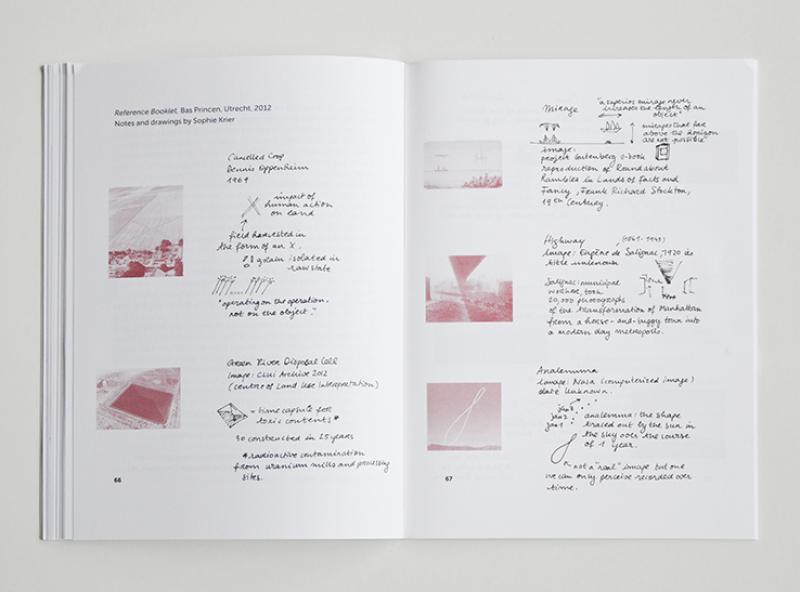 Reference Booklet, Bas Princen, Utrecht, 2012
Notes and drawings by Sophie Krier
Cancelled Crop
Dennis Oppenheim
1969
impact of
human action
on land
field harvested in
the form of an X.
grain isolated in
raw state
"operating on the operation.
not on the object."
Green River Disposal Cell
Image: CLUI Archive 2012
(Centre of Land Use Interpretation)
= time capsule for
toxic contents *
30 constructed in 25 years
* radioactive contamination
from uranium mills and processing
sites.
66
Mirage
"a superior mirage never
increases the length of an
object"
mirages that are
above the horizon
are not possible"
Image:
project Gutenberg e-book
reproduction of Roundabout
Rambles in Lands of facts and
Fancy, Frank Richard Stockton,
19th Century.
Highway
Image: Eugène de Salignac, 1920 is
title unknown
Salignac: municipal
worker, took
20,000 photographs
of the transformation of Manhattan
from a horse-and-buggy town into
a modern day metropolis.
Analemma
Image: Nasa (computerized image)
date unknown.
jan 3
jan 2
jan 1
analemma: the shape
traced out by the sun in
the sky over the course
of 1 year.
not a "real" image but one
we can only perceive recorded over
time.
67